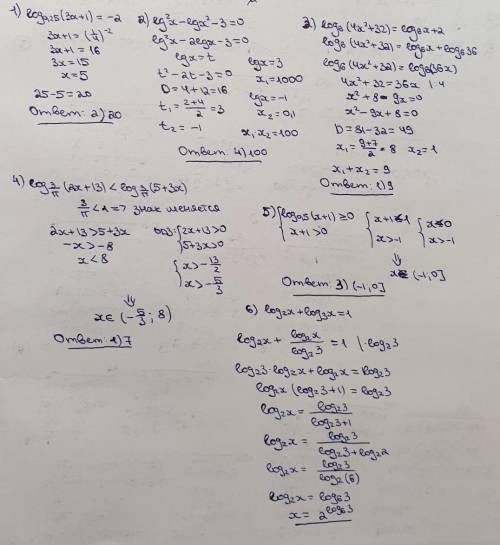 1) log₀,₂₅(3x+1) = -2
3x+1 = (1/4)⁻²
3x+1 = 16
3x = 15
x = 5
25-5=20
Ответ: 2) 20
2) lg²x - lgx² - 3 = 0
lg²x - 2lgx - 3 = 0
lgx = t
t² - 2t - 3 = 0
D = 4+12 = 16
t₁ = (2+4)/2 = 3
t₂ = -1
lgx = 3
x₁ = 1000
lgx = -1
x₂ = 0,1
x₁·x₂ = 100
Ответ: 4) 100
3) log₆(4x²+32) = log₆x + 2
log₆(4x²+32) = log₆x + log₆36
log₆(4x²+32) = log₆(36x)
4x²+32 = 36x |:4
x² + 8 - 9x = 0
x² - 9x + 8 = 0
D = 81-32 = 49
x₁ = (9+7)/2 = 8 x₂ = 1
x₁ + x₂ = 9
Ответ: 1) 9
4) log_{3/π}(2x+13) < log_{3/π}(5+3x)
3/π < 1 => знак меняется
2x+13 > 5+3x
-x > -8
x < 8
ОДЗ: { 2x+13>0
5+3x>0
{ x > -13/2
x > -5/3
⇓
x ∈ (-5/3; 8)
Ответ: 1) 7
5) { log₀,₅(x+1) ≥ 0
x+1 > 0
{ x+1 ≤ 1
x > -1
{ x ≤ 0
x > -1
⇓
x ∈ (-1; 0]
Ответ: 3) (-1; 0]
6) log₂x + log₃x = 1
log₂x + log₂x/log₂3 = 1 |·log₂3
log₂3·log₂x + log₂x = log₂3
log₂x (log₂3+1) = log₂3
log₂x = log₂3/(log₂3+1)
log₂x = log₂3/(log₂3+log₂2)
log₂x = log₂3/log₂(6)
log₂x = log₆3
x = 2^{log₆3}